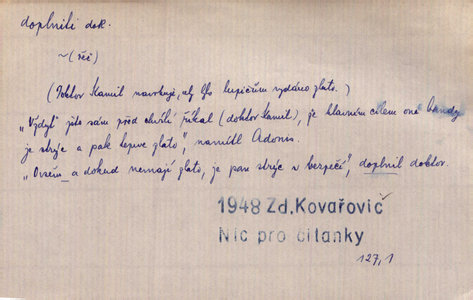 doplniti dok.
~ (řeč)
(Doktor Kamil navrhuje, aby bylo lupičům vydáno zlato.)
„Vždyť jste sám před chvílí říkal (doktor Kamil), že hlavním cílem oné bandy
je strýc a pak teprve zlato", namítl Adonis.
„Ovšem a dokud nemají zlato, je pan strýc v bezpečí", doplnil doktor.
1948 Zd. Kovařovič
Nic pro čítanky
127,1